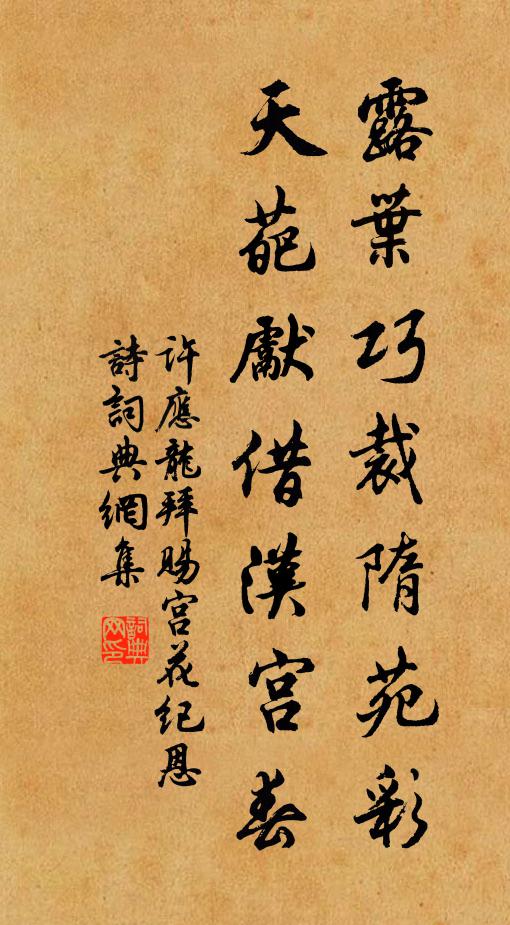 露葉巧裁隋苑彩
天葩獻借漢宮春
許應龍拜賜宮花紀恩
詩詞典網集
詞典网印